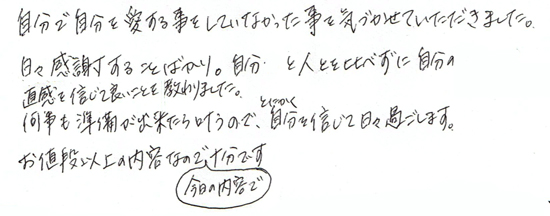 自分で自分を愛する事をしていなかった事を気づかせていただきました。
日々感謝することばかり。自分 と人とを比べずに自分の
直感を信じて良いことを教わりました。
何事も準備が出来たら叶うので、とにかく自分を信じて日々過ごします。
お値段以上の内容なので十分です
今日の内容で